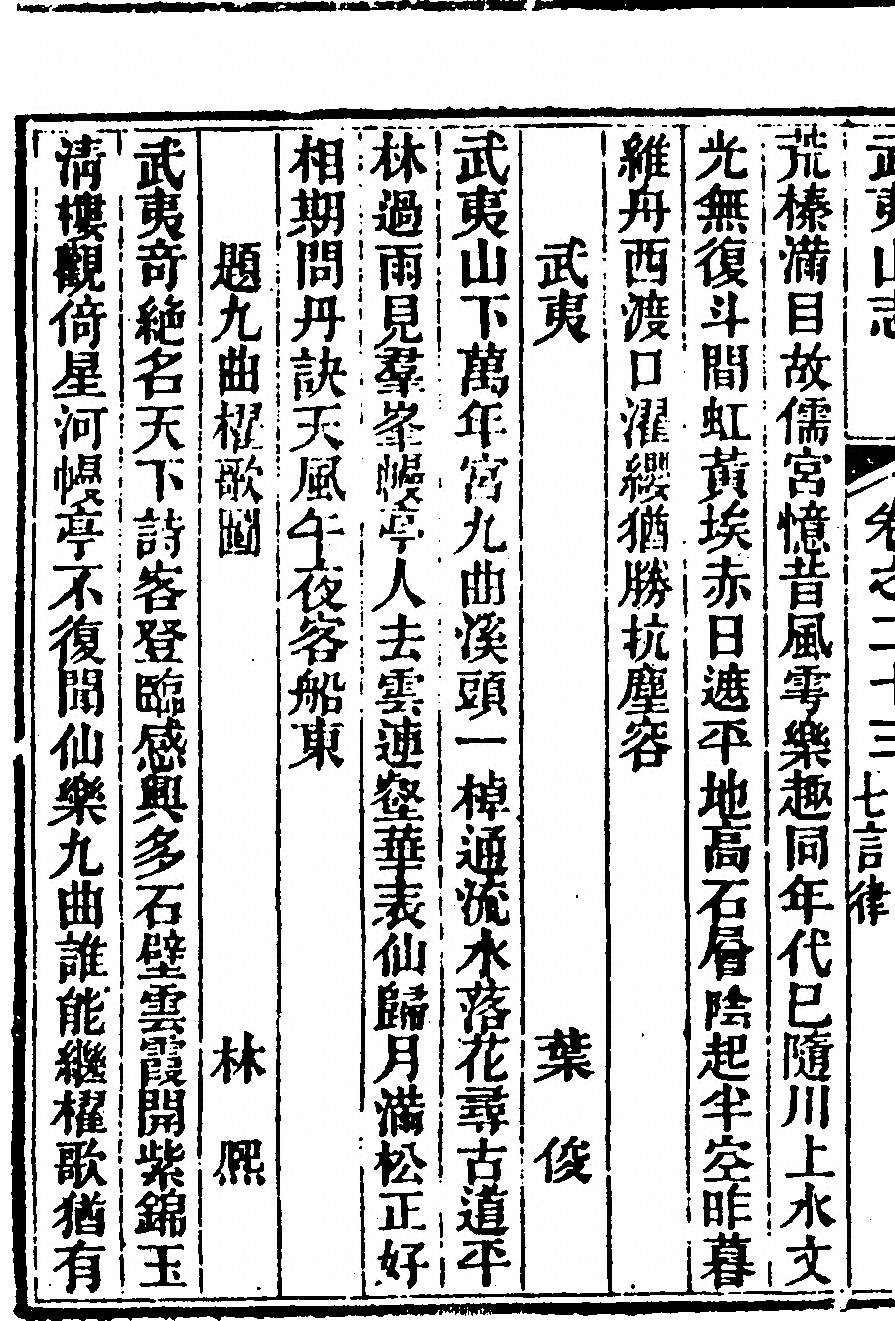 武夷山志
卷之二十三
七言律
荒榛滿目故儒宮憶昔風雩樂趣同年代已隨川上水文
光無復斗間虹黃埃赤日遮平地高石層陰起半空昨暮
維舟西渡口濯纓猶勝抗塵容
武夷
葉俊
武夷山下萬年宮九曲溪頭一棹通流水落花尋古道平
林過雨見羣峯幔亭人去雲連壑華表仙歸月滿松正好
相期問丹訣天風午夜客船東
題九曲櫂歌圖
林熈
武夷奇絕名天下詩客登臨感興多石壁雲霞開紫錦玉
清樓觀倚星河幔亭不復聞仙樂九曲誰能繼櫂歌猶有